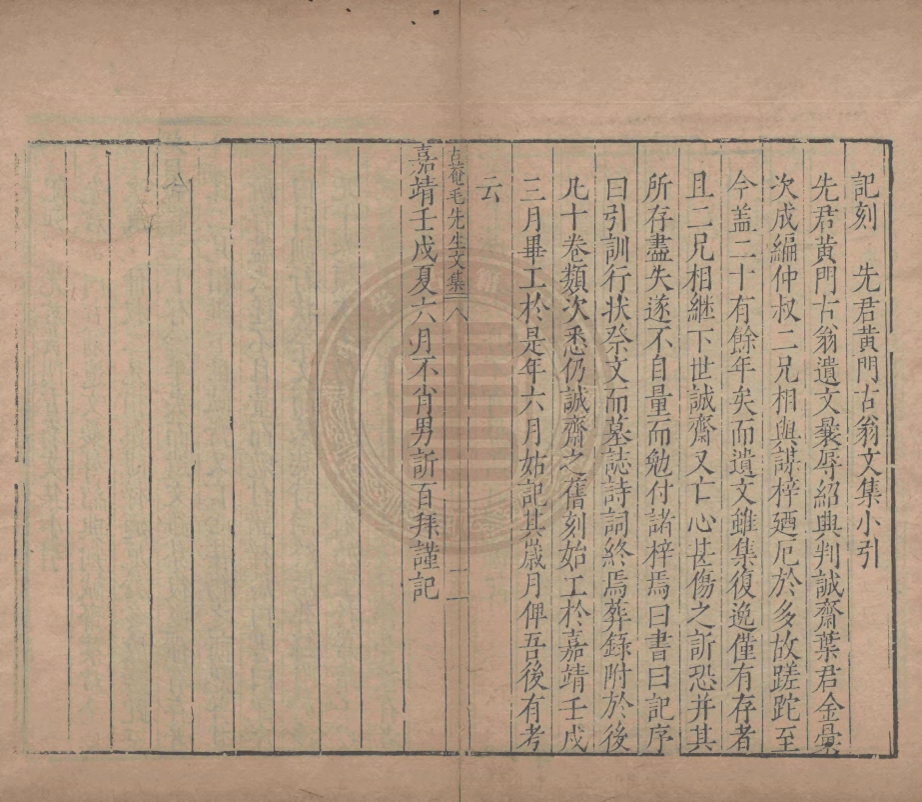 記刻　先君黄門古翁文集小引
先君黄門古翁遺文曩辱紹興判誠齋葉君金彙
次成編仲叔二兄相與謀梓廼厄於多故蹉跎至
今盖二十有餘年矣而遺文雖集復逸僅有存者
且二兄相繼下世誠齋又亡心甚傷之訢恐并其
所存盡失遂不自量而勉付諸梓焉曰書曰記序
曰引訓行狀祭文而墓誌詩詞終焉葬錄附於後
凡十卷類次悉仍誠齋之舊刻始工於嘉靖壬戌
三月畢工於是年六月姑記其歲月俾吾後有考
云
嘉靖壬戌夏六月不肖男訢百拜謹記
古菴毛先生文集 八
二